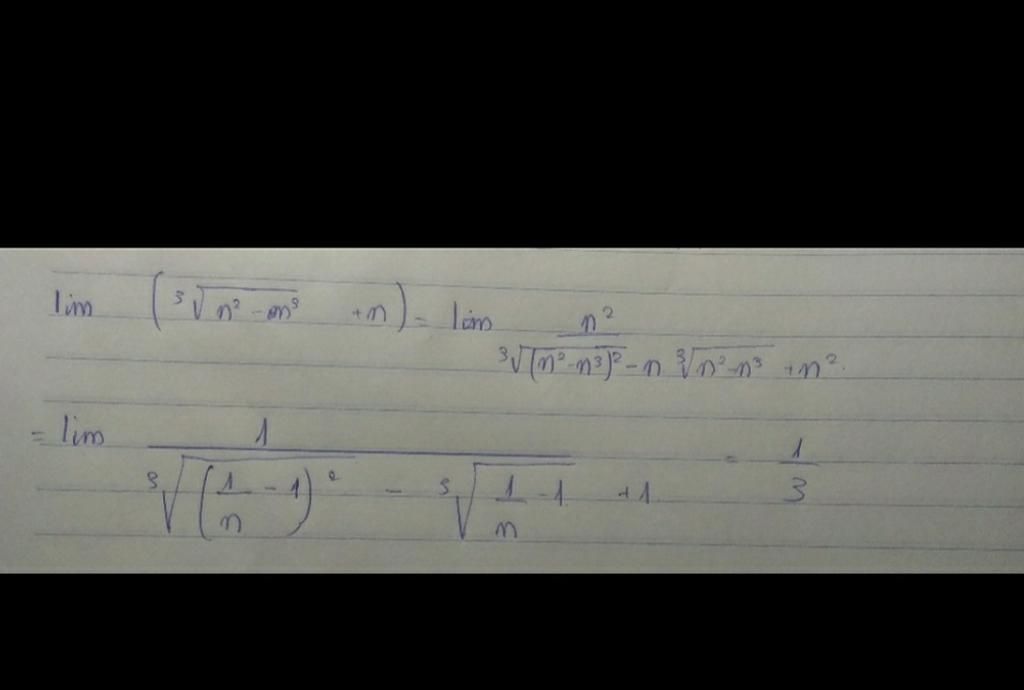 lim (³√(n² - n³) + n) = lim n² / (³√((n² - n³)²) - n ³√(n² - n³) + n²).
= lim 1 / (³√((1/n - 1)²) - ³√(1/n - 1) + 1) = 1/3